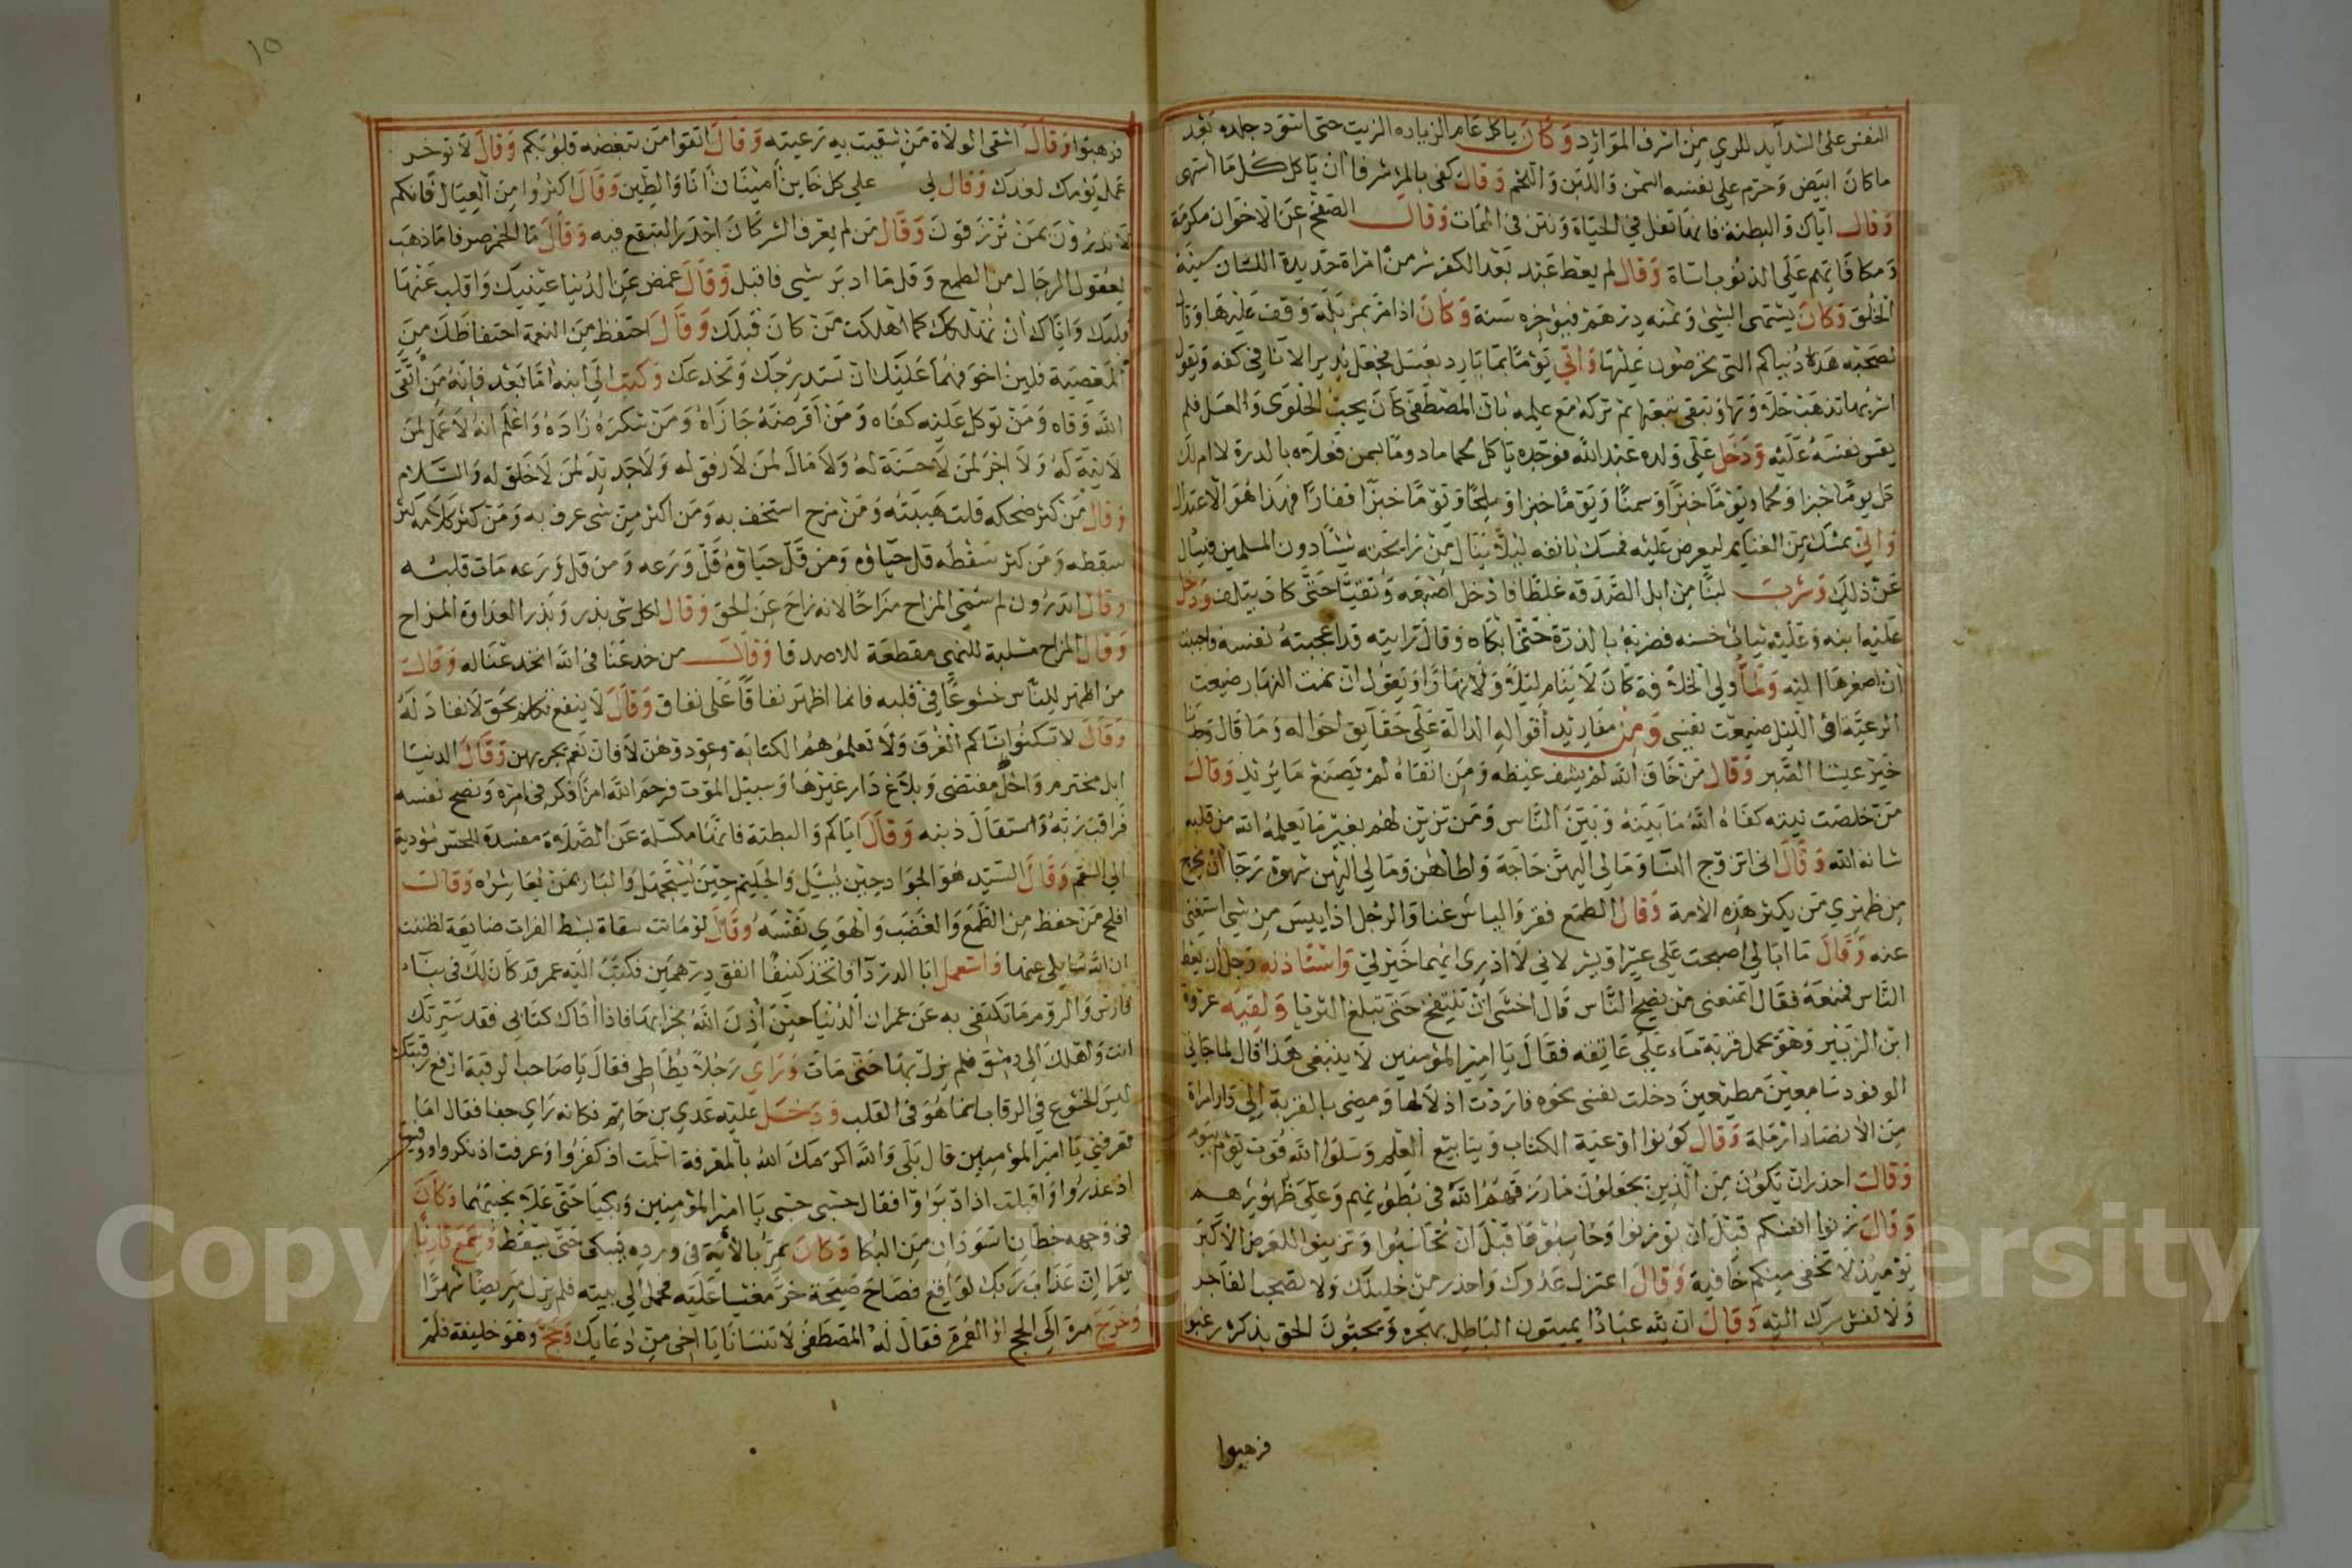 النفس على الشدايد للروي من اشرف الموارد وكان ياكل عام الزياده الزيت حتى اسود جلده بعد
ما كان ابيض وحرم على نفسه السمن واللبن واللحم وقال كفى بالمرء شرفا ان ياكل كل ما اشتهى
وقال اياك والبطنة فانها ثقل في الحياة ونتن في الممات وقال الصفح عن الاخوان مكرمة
ومكافاتهم على الذنوب اساة وقال لم يعط عبد بعد الكفر شر من امراة حديدة اللسان سيئة
الخلق وكان يشتهى الشئ وثمنه درهم فيؤخره سنة وكان اذا مر بمزبلة وقف عليها وقال
لصحبه هذه دنياكم التي تحرصون عليها واتي يوما بماء بارد بعسل فجعل يدير الاناء في كفه ويقول
اشربها تذهب حلاوتها وتبقى تبعتها ثم تركه مع علمه بان المصطفى كان يحب الحلوى والعسل فلم
يقس نفسه عليه ودخل على ولده عبد الله فوجده ياكل لحما مادوما بسمن فعلاه بالدرة لا ام لك
كل يوما خبزا ولحما ويوما خبزا وسمنا ويوما خبزا وملحا ويوما خبزا قفارا فهذا هو الاعتدال
واتي بمسك من الغنايم ليعرض عليه فمسك بانفه ليلا ينال من رايحته شيئا دون المسلمين فيسال
عن ذلك وشرب لبنا من ابل الصدقه غلطا فادخل اصبعه وتقيا حتى كاد يتلف ودخل
عليه ابنه وعليه ثياب حسنه فضربه بالدرة حتى ابكاه وقال رايته قد اعجبته نفسه فاحببت
ان اصغرها اليه ولما ولي الخلافة كان لا ينام ليلا ولا نهارا ويقول ان نمت النهار ضيعت
الرعية او الليل ضيعت نفسي ومن مفاريد اقواله الدالة على حقايق احواله وما قال وجدنا
خير عيشنا الصبر وقال من خاف الله لم يشف غيظه ومن اتقاه لم يصنع ما يريد وقال
من خلصت نيته كفاه الله ما بينه وبين الناس ومن تزين لهم بغير ما يعلمه الله من قلبه
شانه الله وقال اني اتزوج النسا وما لي اليهن حاجة واطاهن وما لي اليهن شهوة رجا ان يخرج
من ظهري من يكثر هذه الامة وقال الطمع فقر والياس غنا والرجل اذا يئس من شي استغنى
عنه وقال ما ابالي اصبحت على عسر او يسر لاني لا ادري ايهما خير لي واستاذنه رجل ان يعظ
الناس فمنعه فقال اتمنعني من نصح الناس قال اخشى ان تنتفخ حتى تبلغ الثريا ولقيه عروة
ابن الزبير وهو يحمل قربة ماء على عاتقه فقال يا امير المؤمنين لا ينبغي هذا قال لما جاني
الوفود سامعين مطيعين دخلت نفسي نخوه فاردت اذلالها ومضى بالقربة الى دار امراة
من الانصار ارملة وقال كونوا اوعية الكتاب وينابيع العلم وسلوا الله قوت يوم بيوم
وقال احذر ان تكون من الذين يجعلون ما رزقهم الله في بطونهم وعلى ظهورهم
وقال زنوا انفسكم قبل ان توزنوا وحاسبوها قبل ان تحاسبوا وتزينوا للعرض الاكبر
يوميذ لا تخفى منكم خافية وقال اعتزل عدوك واحذر من خليلك ولا تصحب الفاجر
ولا تفش سرك اليه وقال ان لله عبادا يميتون الباطل بهجره ويحيون الحق بذكره رغبوا
فرهبوا
١٥
فرهبوا وقال اشقى الولاة من شقيت به رعيته وقال اتقوا من تبغضه قلوبكم وقال لا توخر
عمل يومك لغدك وقال لي على كل خاين امينان انا والطين وقال اكثروا من العيال فانكم
لا تدرون بمن ترزقون وقال من لم يعرف الشر كان اجدر ان يقع فيه وقال ما الخمر صرفا ما ذهب
لعقول الرجال من الطمع وقل ما ادبر شي فاقبل وقال غمض عن الدنيا عينيك واقلب عنها
قلبك واياك ان تهلكك كما اهلكت من كان قبلك وقال احتفظ من النعمة احتفاظك من
المعصية فلهي اخوفهما عليك ان تستدرجك وتخدعك وكتب الى ابنه اما بعد فانه من اتقى
الله وقاه ومن توكل عليه كفاه ومن اقرضه جازاه ومن شكره زاده واعلم انه لا عمل لمن
لا نية له ولا اجر لمن لا حسنة له ولا مال لمن لا رفق له ولا جديد لمن لا خلق له والسلام
وقال من كثر ضحكه قلت هيبته ومن مزح استخف به ومن اكثر من شي عرف به ومن كثر كلامه كثر
سقطه ومن كثر سقطه قل حياؤه ومن قل حياؤه قل ورعه ومن قل ورعه مات قلبه
وقال اتدرون لم سمي المزاح مزاحا لانه زاح عن الحق وقال لكل شي بذر وبذر العداوة المزاح
وقال المزاح مسلبة للنهى مقطعة للاصدقا وقال من خدعنا في الله انخدعنا له وقال
من اظهر للناس خشوعا في قلبه فانما اظهر نفاقا على نفاق وقال لا ينفع تكلم بحق لا نفاذ له
وقال لا تسكنوا نساكم الغرف ولا تعلموهم الكتابة وعودوهن لا فان نعم تجريهن وقال الدنيا
امل مخترم واجل مقتضى وبلاغ دار غيرها وسبيل الموت فرحم الله امرا فكر في امره ونصح نفسه
فراقب ربه واستقال ذنبه وقال اياكم والبطنة فانها مكسلة عن الصلاة مفسدة للجسم مؤدية
الى السقم وقال السيد هو الجواد حين يسئل والحليم حين يستجهل والبار بمن يعاشره وقال
افلح من حفظ من الطمع والغضب والهوى نفسه وقال لو ماتت شاة بشط الفرات ضايعة لظننت
ان الله سايلي عنها واستعمل ابا الدردا فاتخذ كنيفا انفق درهمين فكتب اليه عمر قد كان لك في بناء
فارس والروم ما تكتفي به عن عمران الدنيا حين اذن الله بخرابها فاذا اتاك كتابي فقد سيرتك
انت واهلك الى دمشق فلم يزل بها حتى مات وراي رجلا يطاطي فقال يا صاحب الرقبة ارفع رقبتك
ليس الخشوع في الرقاب انما هو في القلب ودخل عليه عدي بن حاتم فكانه راي جفا فقال اما
تعرفني يا امير المؤمنين قال بلى والله اكرمك الله بالمعرفة اسلمت اذ كفروا وعرفت اذ نكروا ووفيت
اذ غدروا واقبلت اذ ادبروا فقال حسبي حسبي يا امير المؤمنين وبكيا حتى علا نحيبهما وكان
في وجهه خطان اسودان من البكا وكان يمر بالاية في ورده فيبكي حتى يسقط وسمع قاريا
يقرا ان عذاب ربك لواقع فصاح صيحة خر مغشيا عليه فحمل الى بيته فلم يزل مريضا شهرا
وخرج مرة الى الحج او العمرة فقال له المصطفى لا تنسانا يا اخي من دعايك وحج وهو خليفة فلم
Copyright © King Saud University